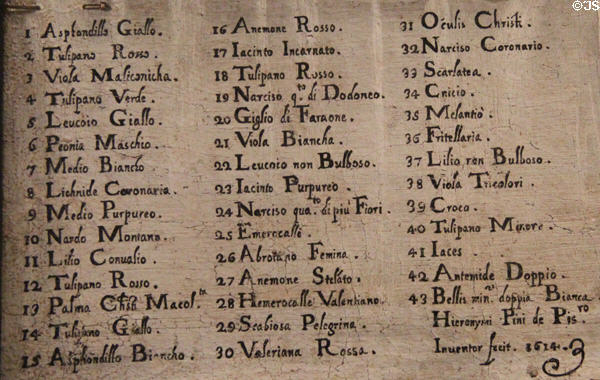 © JS
1 Asphondillo Giallo.
2 Tulipano Rosso.
3 Viola Maliconicha.
4 Tulipano Verde.
5 Leucoio Giallo.
6 Peonia Maschio.
7 Medio Biancho.
8 Lichnide Coronaria.
9 Medio Purpureo.
10 Nardo Montano.
11 Lilio Conualio.
12 Tulipano Rosso.
13 Palma Chṙi Macol.ta
14 Tulipano Giallo.
15 Asphondillo Biancho.
16 Anemone Rosso.
17 Iacinto Incarnato.
18 Tulipano Rosso.
19 Narciso q.to di Dodoneo.
20 Giglio di Faraone.
21 Viola Biancha.
22 Leucoio non Bulboso.
23 Iacinto Purpureo.
24 Narciso qua.to di più Fiori.
25 Emerocalle.
26 Abrotano Femina.
27 Anemone Stellato.
28 Hemerocalle Valentiano.
29 Scabiosa Pelegrina.
30 Valeriana Rossa.
31 Oculis Christi.
32 Narciso Coronario.
33 Scarlatea.
34 Cnicio.
35 Melantio.
36 Fritellaria.
37 Lilio non Bulboso.
38 Viola Tricolori.
39 Croco.
40 Tulipano Minore.
41 Iaces.
42 Antemide Doppio.
43 Bellis min.e doppia Bianca
Hieronymi Pini de Pis.ro
Inventor fecit. 1614.